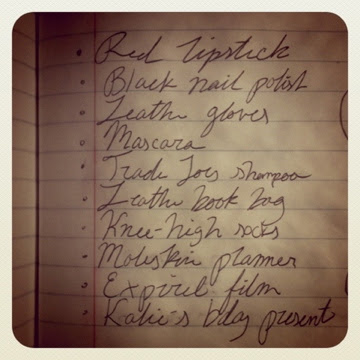 Red lipstick
Black nail polish
Leather gloves
Mascara
Trader Joes shampoo
Leather book bag
Knee-high socks
Moleskin planner
Expired film
Katie's bday present